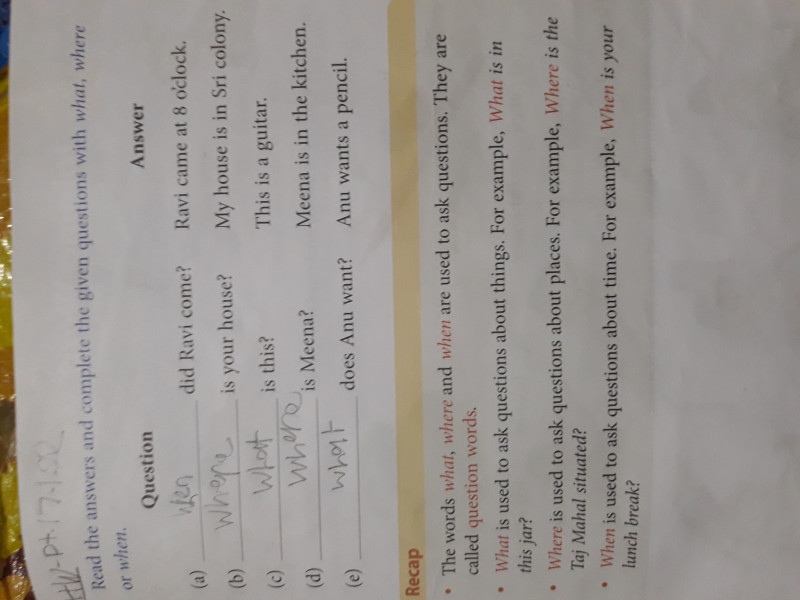 Read the answers and complete the given questions with what, where
or when.
Question Answer
(a) wen did Ravi come? Ravi came at 8 o'clock.
(b) where is your house? My house is in Sri colony.
(c) what is this? This is a guitar.
(d) where is Meena? Meena is in the kitchen.
(e) what does Anu want? Anu wants a pencil.
Recap
• The words what, where and when are used to ask questions. They are
called question words.
• What is used to ask questions about things. For example, What is in
this jar?
• Where is used to ask questions about places. For example, Where is the
Taj Mahal situated?
• When is used to ask questions about time. For example, When is your
lunch break?